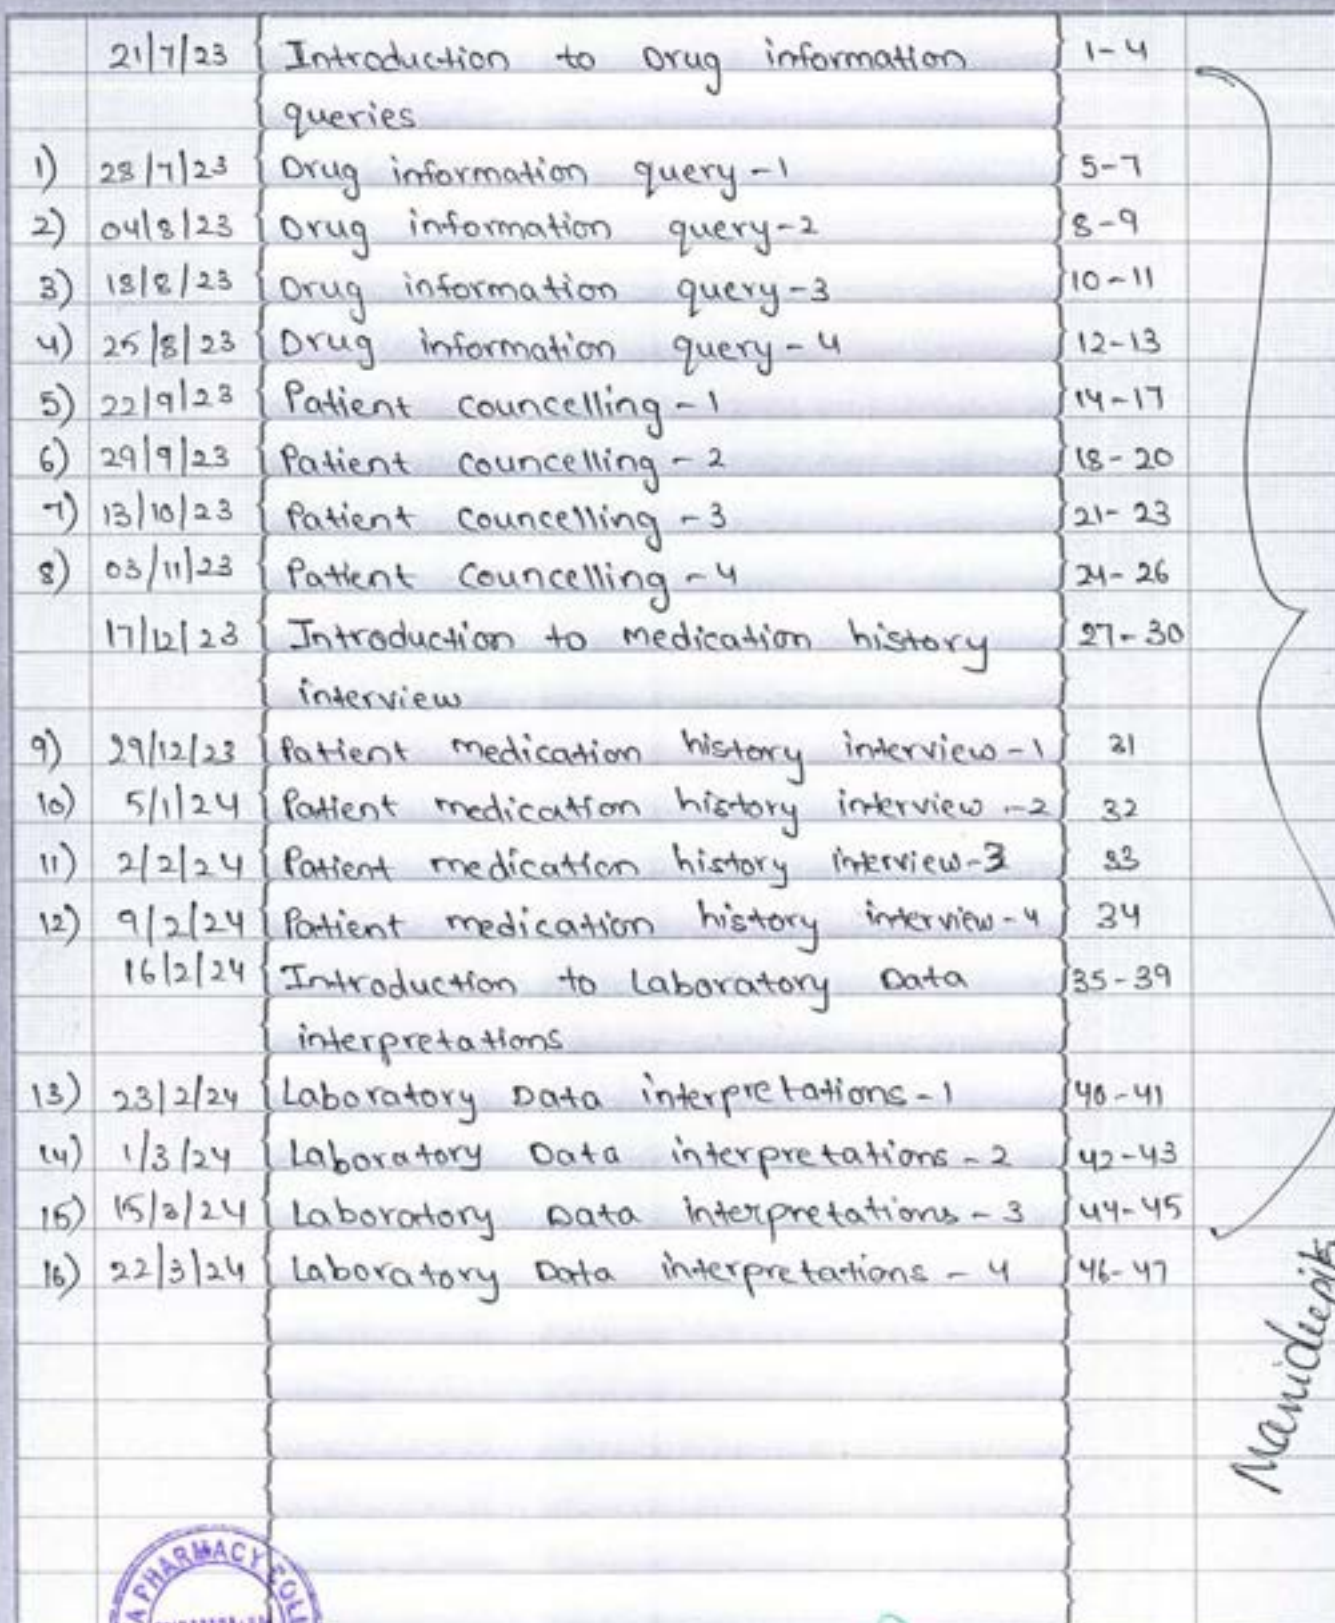 21/7/23 Introduction to Drug information 1-4
queries
1) 28/7/23 Drug information query-1 5-7
2) 04/8/23 Drug information query-2 8-9
3) 18/8/23 Drug information query-3 10-11
4) 25/8/23 Drug information query-4 12-13
5) 22/9/23 Patient councelling-1 14-17
6) 29/9/23 Patient councelling-2 18-20
7) 13/10/23 Patient councelling-3 21-23
8) 03/11/23 Patient councelling-4 24-26
17/12/23 Introduction to medication history 27-30
interview
9) 29/12/23 Patient medication history interview-1 31
10) 5/1/24 Patient medication history interview-2 32
11) 2/2/24 Patient medication history interview-3 33
12) 9/2/24 Patient medication history interview-4 34
16/2/24 Introduction to Laboratory Data 35-39
interpretations
13) 23/2/24 Laboratory Data interpretations-1 40-41
14) 1/3/24 Laboratory Data interpretations-2 42-43
15) 15/3/24 Laboratory Data interpretations-3 44-45
16) 22/3/24 Laboratory Data interpretations-4 46-47
PHARMACY